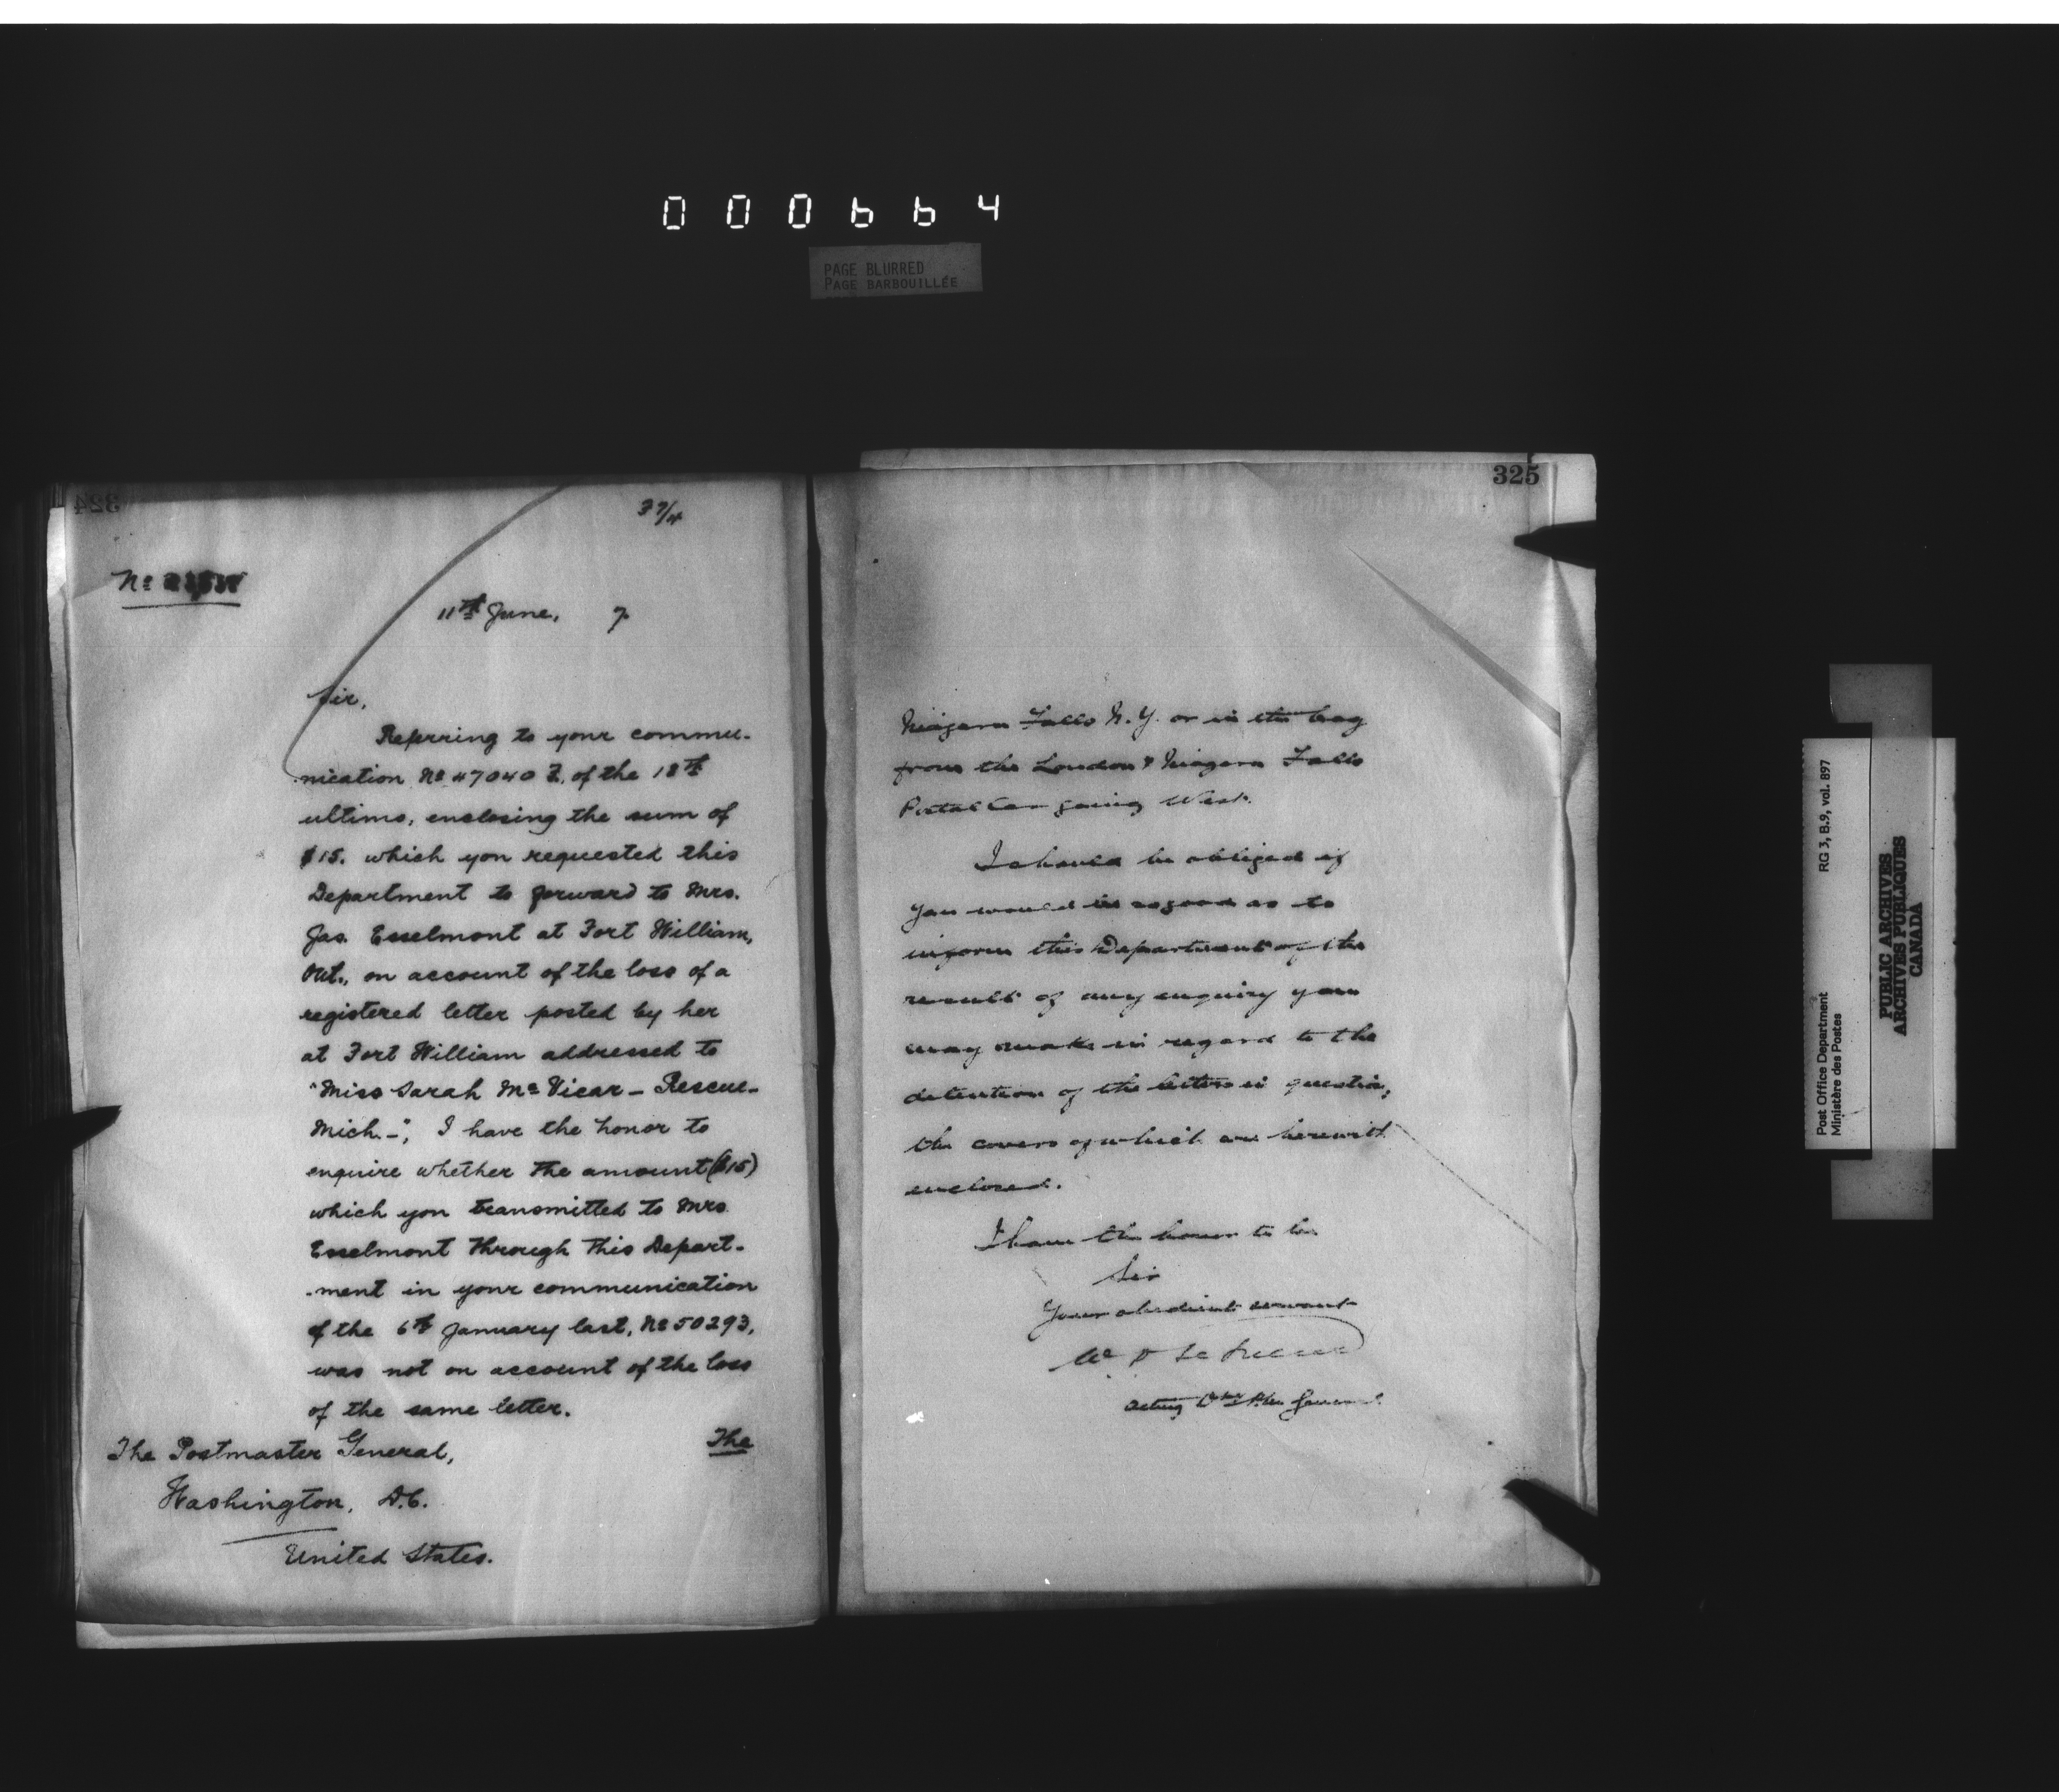 000664
PAGE BLURRED
PAGE BARBOUILLÉE
324
37/4
No
11th June, 7
Sir,
Referring to your commu-
nication No 47040 Z, of the 18th
ultimo, enclosing the sum of
$15. which you requested this
Department to forward to Mrs.
Jas. Esselmont at Fort William,
Ont., on account of the loss of a
registered letter posted by her
at Fort William addressed to
"Miss Sarah McVicar - Rescue -
Mich. -", I have the honor to
enquire whether the amount ($15)
which you transmitted to Mrs.
Esselmont through this Depart-
-ment in your communication
of the 6th January last, No 50293,
was not on account of the loss
of the same letter.
The
The Postmaster General,
Washington, D.C.
United States.
325
Niagara Falls N.Y. or in the bag
from the London & Niagara Falls
Postal Car going West.
I should be obliged if
you would be so good as to
inform this Department of the
result of any enquiry you
may make in regard to the
detention of the letters in question,
the covers of which are herewith
enclosed.
I have the honor to be
Sir
Your obedient servant
W. D. LeSueur
Acting General.
Post Office Department
Ministère des Postes
RG 3, B.9, vol. 897
PUBLIC ARCHIVES
ARCHIVES PUBLIQUES
CANADA